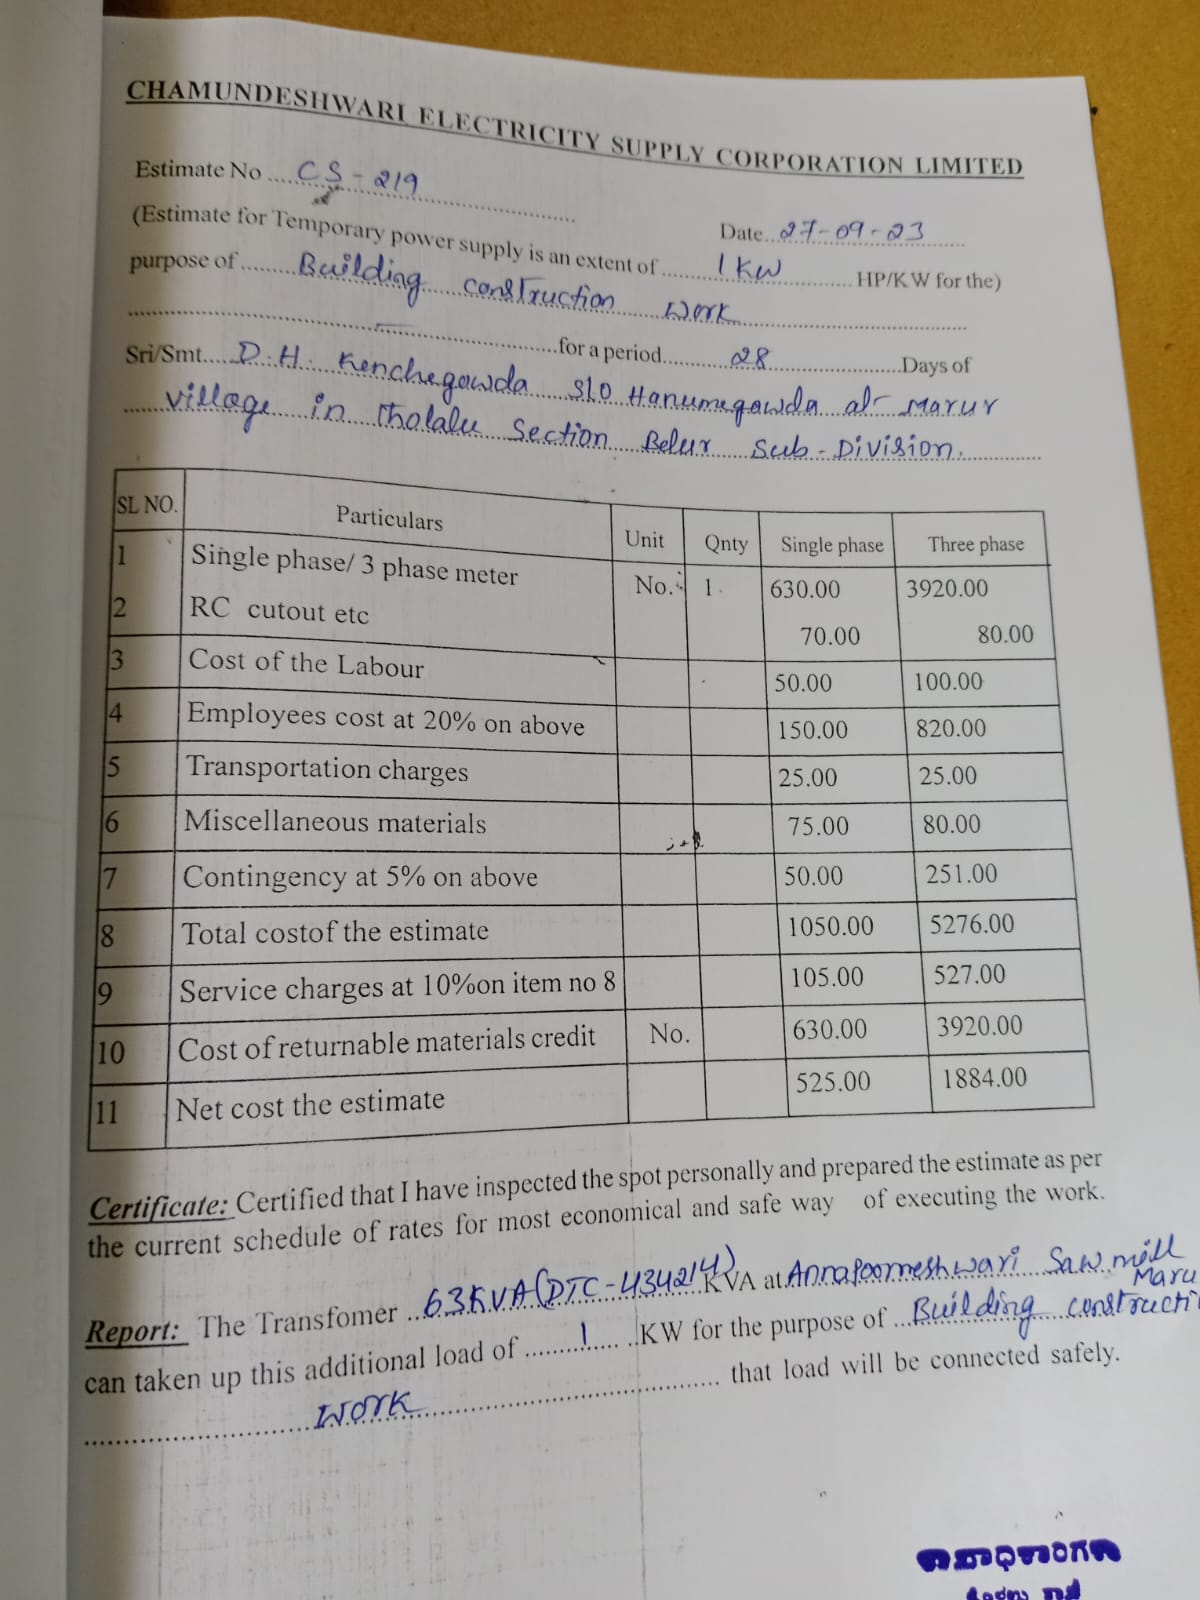 CHAMUNDESHWARI ELECTRICITY SUPPLY CORPORATION LIMITED
Estimate No ....CS-219
Date..27-09-23
(Estimate for Temporary power supply is an extent of ........1 KW............... HP/KW for the)
purpose of .........Building construction work
....................................for a period.........28.....................Days of
Sri/Smt.....D.H. Kenchegowda S/o Hanumegowda at Marur
village in Tholalu Section Belur Sub-Division.
SL NO. Particulars Unit Qnty Single phase Three phase
1 Single phase/ 3 phase meter No. 1 630.00 3920.00
2 RC cutout etc 70.00 80.00
3 Cost of the Labour 50.00 100.00
4 Employees cost at 20% on above 150.00 820.00
5 Transportation charges 25.00 25.00
6 Miscellaneous materials 75.00 80.00
7 Contingency at 5% on above 50.00 251.00
8 Total costof the estimate 1050.00 5276.00
9 Service charges at 10%on item no 8 105.00 527.00
10 Cost of returnable materials credit No. 630.00 3920.00
11 Net cost the estimate 525.00 1884.00
Certificate: Certified that I have inspected the spot personally and prepared the estimate as per
the current schedule of rates for most economical and safe way of executing the work.
Report: The Transfomer ..63KVA(DTC-434214)KVA at Annapoorneshwari Saw mill
Maru
can taken up this additional load of ..........1..... ..KW for the purpose of ..Building constructi
work ........................................ that load will be connected safely.